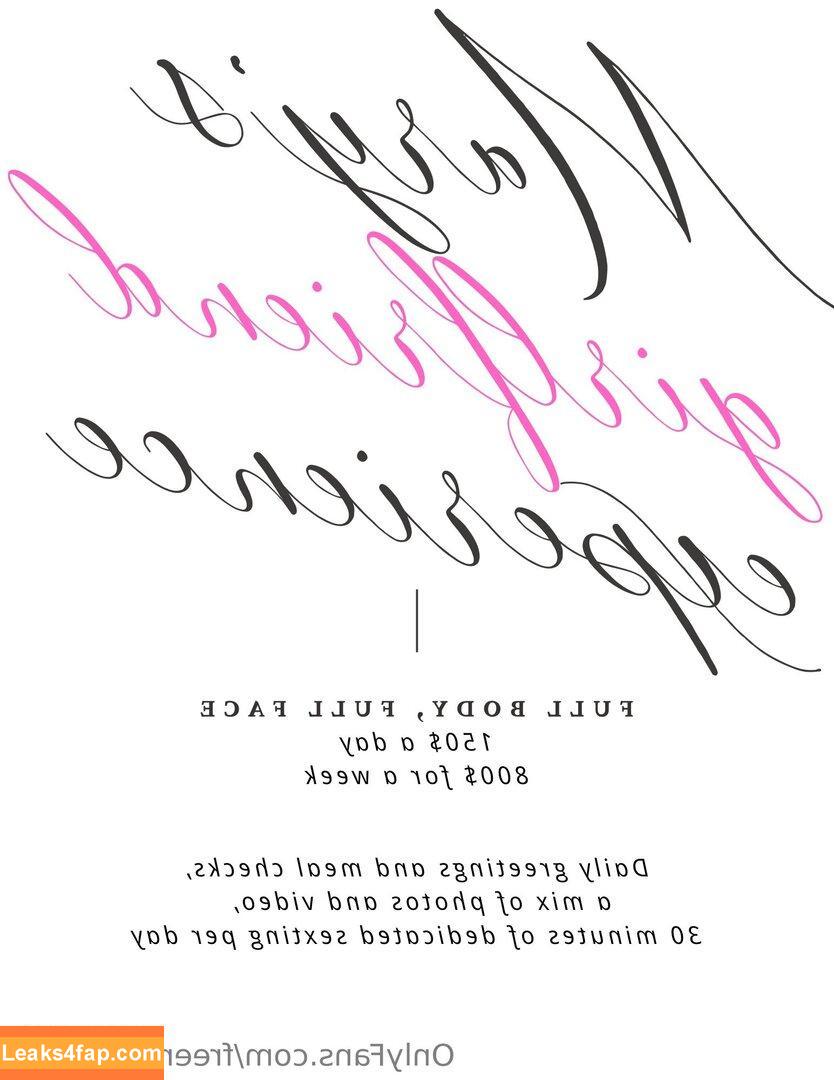 Mary's
girlfriend
experience
FULL BODY, FULL FACE
150$ a day
800$ for a week
Daily greetings and meal checks,
a mix of photos and video,
30 minutes of dedicated sexting per day
Leaks4fap.com